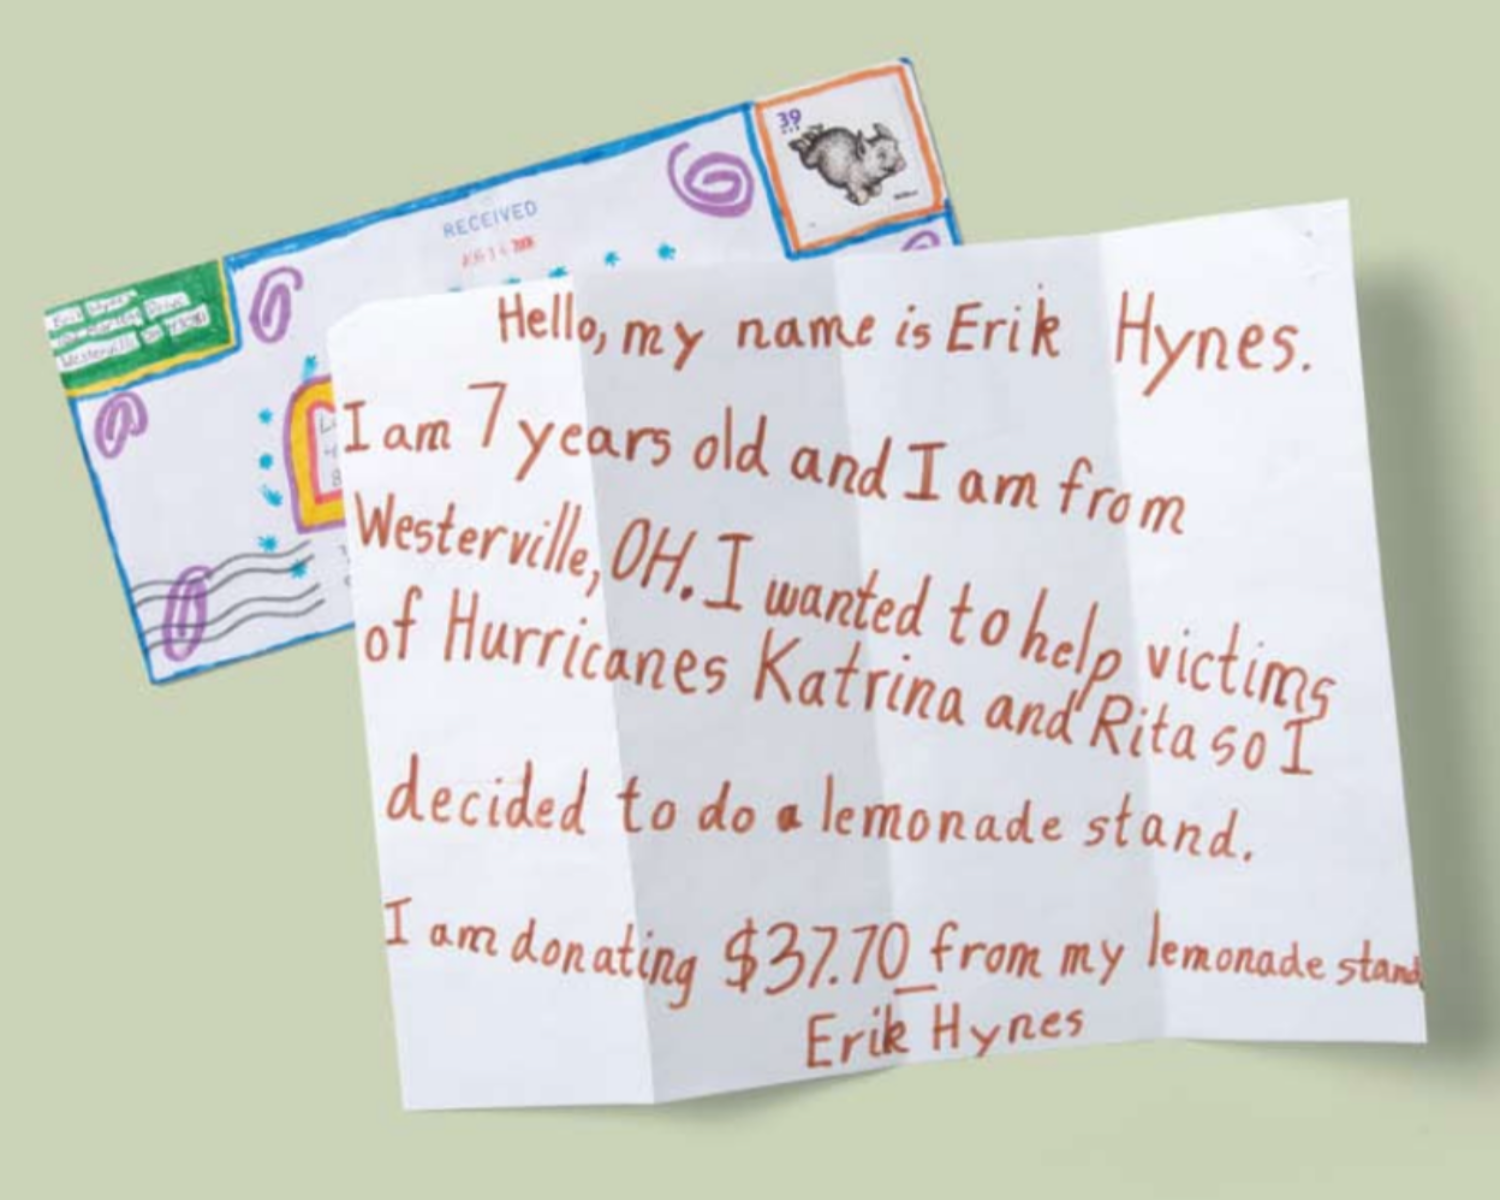 39
RECEIVED
Erik Hynes
Drive
Westerville
Hello, my name is Erik Hynes.
I am 7 years old and I am from
Westerville, OH. I wanted to help victims
of Hurricanes Katrina and Rita so I
decided to do a lemonade stand.
I am donating $37.70 from my lemonade stand
Erik Hynes